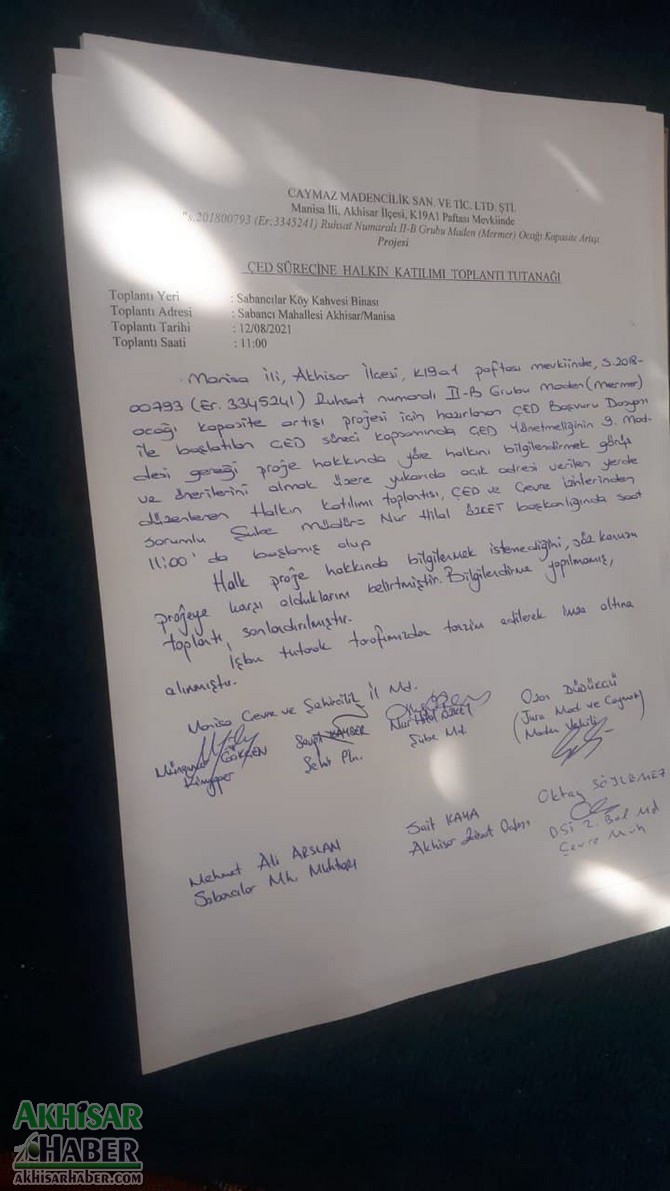 CAYMAZ MADENCİLİK SAN. VE TİC. LTD. ŞTİ.
Manisa İli, Akhisar İlçesi, K19A1 Paftası Mevkiinde
"s.201800793 (Er:3345241) Ruhsat Numaralı II-B Grubu Maden (Mermer) Ocağı Kapasite Artışı
Projesi
ÇED SÜRECİNE HALKIN KATILIMI TOPLANTI TUTANAĞI
Toplantı Yeri : Sabancılar Köy Kahvesi Binası
Toplantı Adresi : Sabancı Mahallesi Akhisar/Manisa
Toplantı Tarihi : 12/08/2021
Toplantı Saati : 11:00
Manisa İli, Akhisar İlçesi, K19a1 paftası mevkiinde, S.2018-
00793 (Er. 3345241) Ruhsat numaralı II-B Grubu Maden (Mermer)
ocağı kapasite artışı projesi için hazırlanan ÇED Başvuru Dosyası
ile başlatılan ÇED süreci kapsamında ÇED Yönetmeliğinin 9. Mad-
desi gereği proje hakkında yöre halkını bilgilendirmek görüş
ve önerilerini almak üzere yukarıda açık adresi verilen yerde
düzenlenen Halkın katılımı toplantısı, ÇED ve Çevre İzinlerinden
sorumlu Şube Müdürü Nur Hilal ÖZKET başkanlığında saat
11:00' da başlamış olup
Halk proje hakkında bilgilenmek istemediğini, söz konusu
projeye karşı olduklarını belirtmiştir. Bilgilendirme yapılmamış,
toplantı, sonlandırılmıştır.
İşbu tutanak tarafımızdan tanzim edilerek imza altına
alınmıştır.
Manisa Çevre ve Şehircilik İl Md.
GÖKÇEN
Nur Hilal ÖZKET
Şube Md.
Şehir Pln.
Ozan DÜDÜKCÜ
(Jura Mad ve Caymaz
Maden Vekili)
Mehmet Ali ARSLAN
Sabancılar Mh. Muhtarı
Sait KAYA
Akhisar Ziraat Odası
Oktay SÖYLEMEZ
DSİ 2. Böl Md
Çevre Müh
AKHİSAR
HABER
akhisarhaber.com